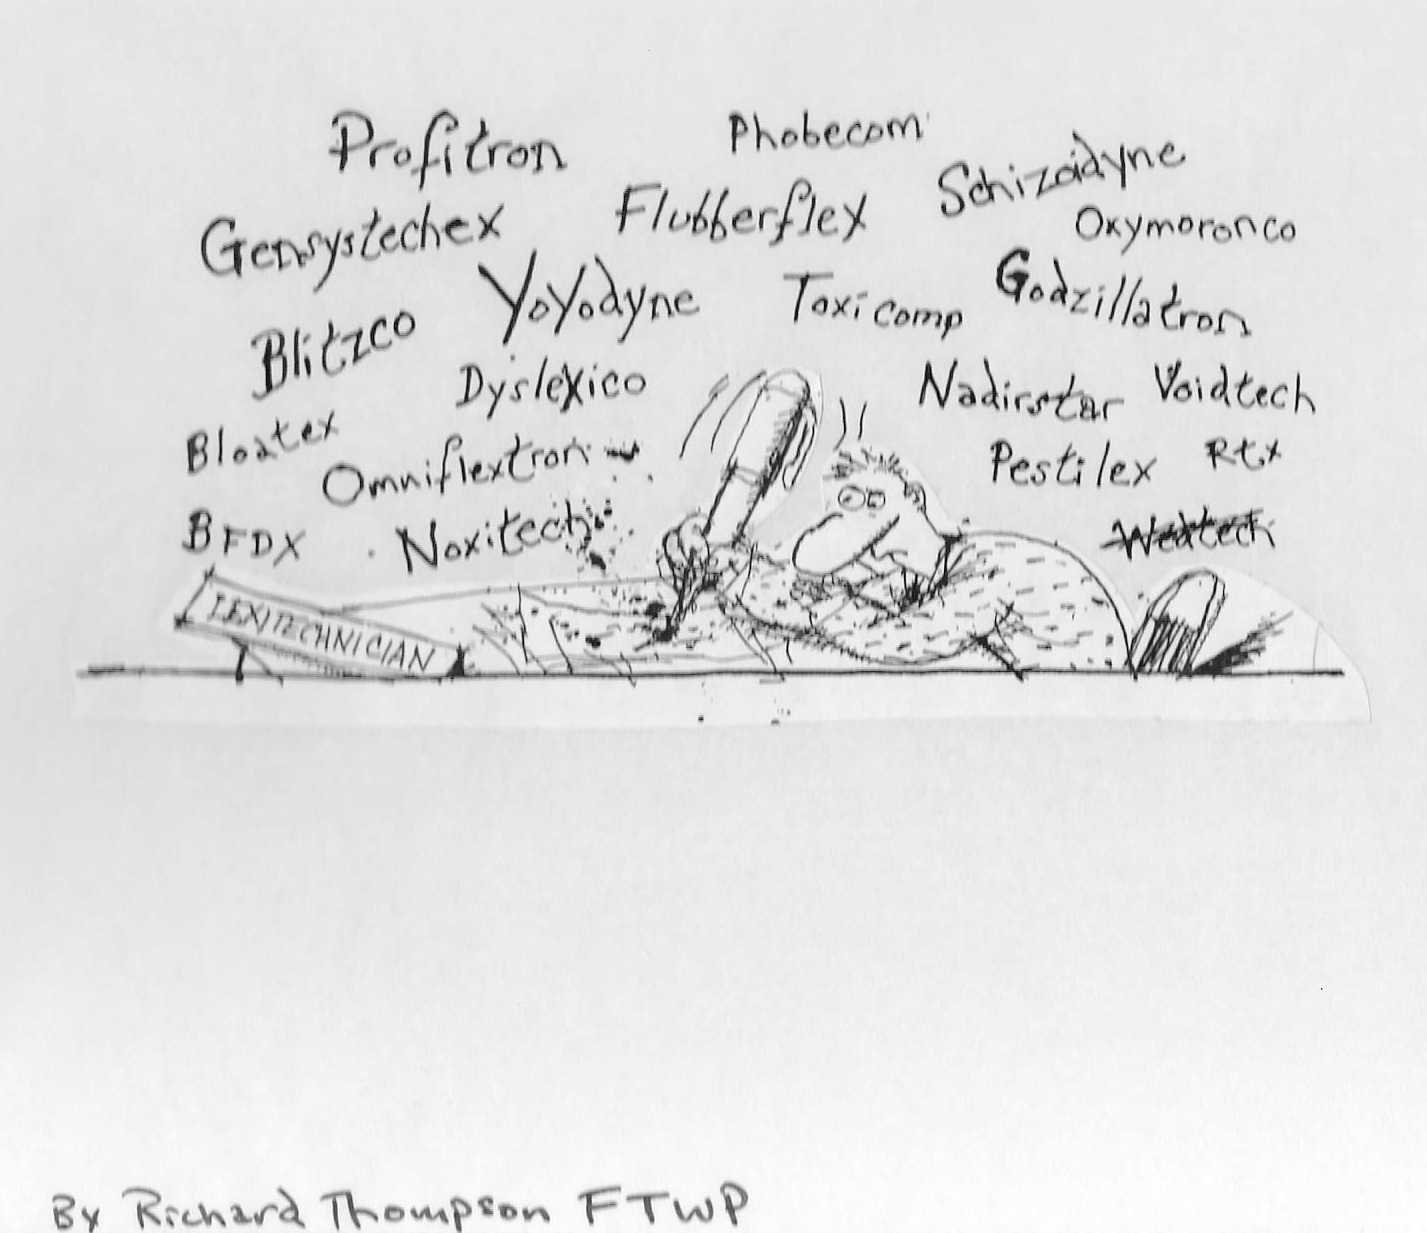 Profitron
Phobecom
Schizoidyne
Gensystechex
Flubberflex
Oxymoronco
Blitzco
YoYodyne
Toxicomp
Godzillatron
Dyslexico
Nadirstar
Voidtech
Bloatex
Omniflextron
Pestilex
Rtx
BFDX
Noxitech
Wedtech
LEXITECHNICIAN
By Richard Thompson FTWP